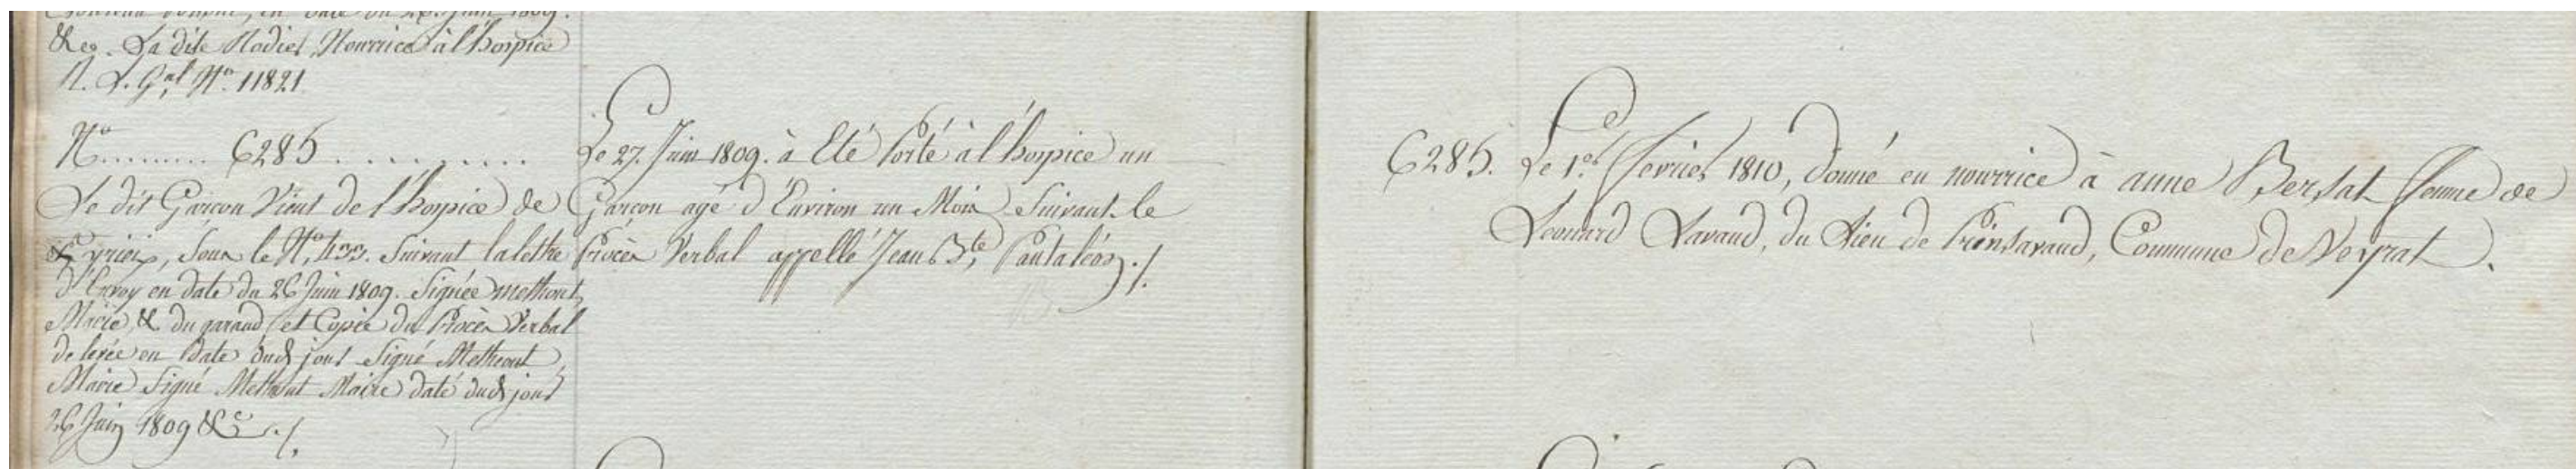 &ca. La dite Nadiel, Nourrice à l'hospice
R. L. Gal No. 11821
No ......... 6285 ..........
Le dit Garçon Vient de l'hospice de
St yrieix, Sous le No, 433. Suivant la lettre
d'Envoy en date du 26 Juin 1809. Signée methout,
Maire, & du garaud, et Copie du Procès Verbal
de levée en Date dud jour Signé Metheout
Maire Signé Methout Maire daté dud jour
26 Juin 1809 &c ./.
Le 27. Juin 1809. à Eté Porté à l'hospice un
Garçon agé d'Environ un Mois Suivant le
Procès Verbal appellé Jean Bte, Pantaléon ./.
6285. Le 1er. fevrier 1810, donné en nourrice à anne Bersat femme de
Leonard Lavaud, du Lieu de Prinsavaud, Commune de Veyrat.